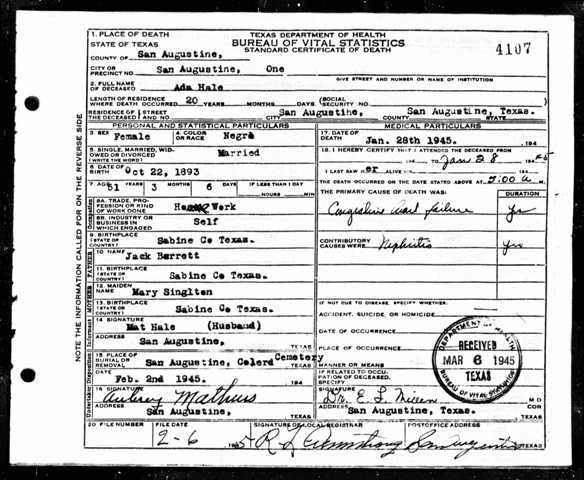 1. PLACE OF DEATH
STATE OF TEXAS
TEXAS DEPARTMENT OF HEALTH
BUREAU OF VITAL STATISTICS
STANDARD CERTIFICATE OF DEATH
4107
COUNTY OF San Augustine,
CITY OR PRECINCT NO. San Augustine, One
GIVE STREET AND NUMBER OR NAME OF INSTITUTION
2. FULL NAME OF DECEASED Ada Hale
LENGTH OF RESIDENCE WHERE DEATH OCCURRED 20 YEARS MONTHS DAYS (SOCIAL SECURITY NO.
RESIDENCE OF THE DECEASED STREET AND NO. San Augustine, CITY San Augustine, Texas. COUNTY STATE
PERSONAL AND STATISTICAL PARTICULARS
3. SEX Female
4. COLOR OR RACE Negro
5. SINGLE, MARRIED, WIDOWED OR DIVORCED (WRITE THE WORD) Married
6. DATE OF BIRTH Oct 22, 1893
7. AGE 51 YEARS 3 MONTHS 6 DAYS IF LESS THAN 1 DAY HOURS MIN
8A. TRADE, PROFESSION OR KIND OF WORK DONE Work
8B. INDUSTRY OR BUSINESS IN WHICH ENGAGED Self
9. BIRTHPLACE (STATE OR COUNTRY) Sabine Co Texas.
10. NAME Jack Barrett
11. BIRTHPLACE (STATE OR COUNTRY) Sabine Co Texas.
12. MAIDEN NAME Mary Singlton
13. BIRTHPLACE (STATE OR COUNTRY) Sabine Co Texas.
14. SIGNATURE Mat Hale (Husband)
ADDRESS San Augustine, TEXAS
15. PLACE OF BURIAL OR REMOVAL San Augustine, Colord Cemetery TEXAS
DATE Feb. 2nd 1945. 194
16. SIGNATURE Aubrey Mathews
ADDRESS San Augustine, TEXAS
MEDICAL PARTICULARS
17. DATE OF DEATH Jan. 28th 1945. 194
18. I HEREBY CERTIFY THAT I ATTENDED THE DECEASED FROM
194 TO Jan 28 1945
I LAST SAW ALIVE ON 194
THE DEATH OCCURRED ON THE DATE STATED ABOVE AT 2:00 A M.
THE PRIMARY CAUSE OF DEATH WAS: DURATION
failure
CONTRIBUTORY CAUSES WERE: Nephritis
IF NOT DUE TO DISEASE, SPECIFY WHETHER:
ACCIDENT, SUICIDE, OR HOMICIDE
DATE OF OCCURRENCE
PLACE OF OCCURRENCE
MANNER OR MEANS
IF RELATED TO OCCUPATION OF DECEASED, SPECIFY
SIGNATURE Dr. E. L. M D
ADDRESS San Augustine, Texas. TEXAS
DEPARTMENT OF HEALTH
RECEIVED
MAR 6 1945
TEXAS
BUREAU OF VITAL STATISTICS
20 FILE NUMBER
FILE DATE 2-6 1945
SIGNATURE OF LOCAL REGISTRAR R Armstrong
POSTOFFICE ADDRESS San Augustine TEXAS
NOTE THE INFORMATION CALLED FOR ON THE REVERSE SIDE
Occupation
FATHER
MOTHER
Informant
Disposition
Undertaker